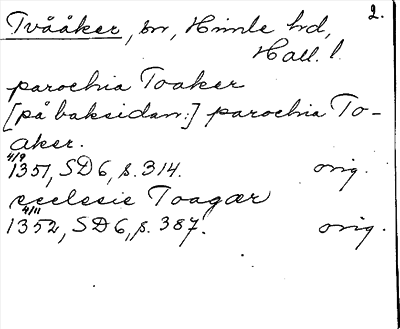 2.
Tvååker, sn, Himle hd,
Hall. l.
parochia Toaker
[på baksidan:] parochia To-
aker.
4/9
1351, SD 6, s. 314. orig.
ecclesie Toagær
4/11
1352, SD 6, s. 387. orig.